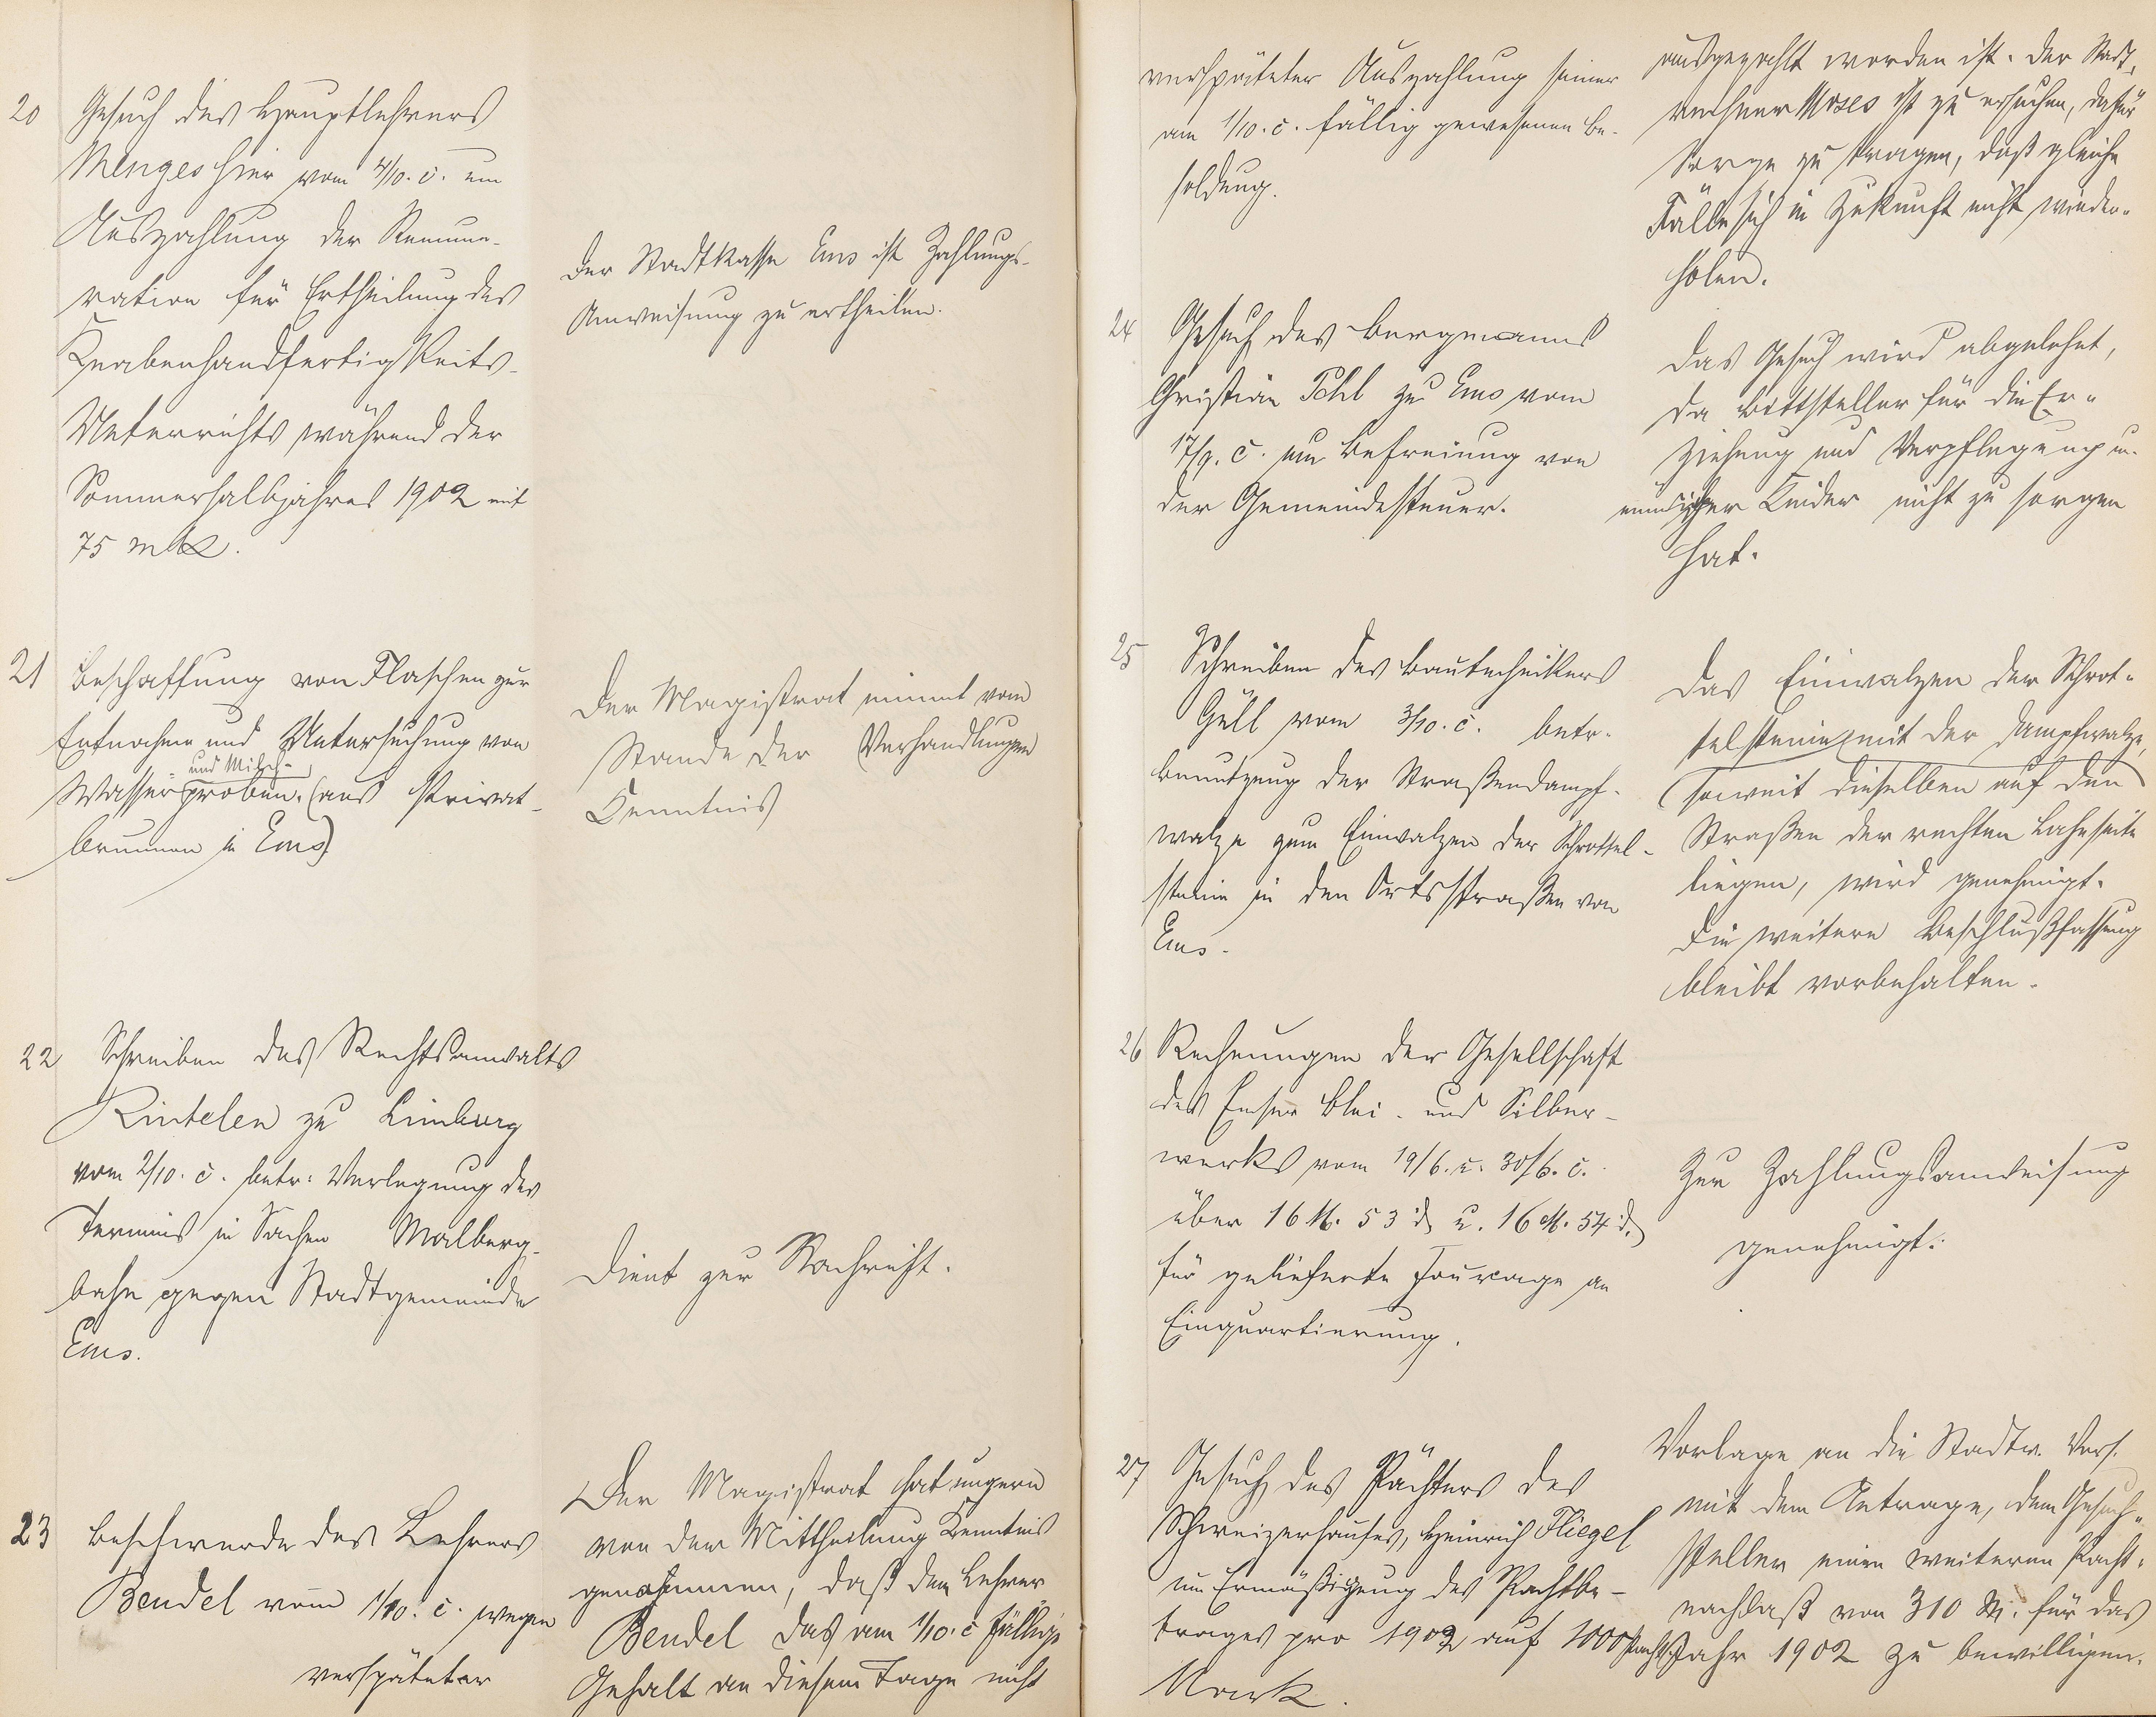 20 Gesuch des Hauptlehrers
Menges hier vom 4/10. c. um
Auszahlung der Remune-
ration für Ertheilung des
Knabenhandfertigkeits-
Unterrichts während der
Sommerhalbjahres 1902 mit
75 Mk.
Der Stadtkasse Ems ist Zahlungs-
Anweisung zu ertheilen.
21 Beschaffung von Flaschen zur
Entnahme und Untersuchung von
- und Milch-
Wasserproben. (aus Privat-
brunnen in Ems)
Der Magistrat nimmt vom
Stande der Verhandlungen
Kenntnis
22 Schreiben des Rechtsanwalts
Rintelen zu Limburg
vom 2/10. c. betr: Verlegung des
Termins in Sachen Malberg-
bahn gegen Stadtgemeinde
Ems.
Dient zur Nachricht.
23 Beschwerde des Lehrers
Bendel vom 1/10. c. wegen
verspäteter
Der Magistrat hat ungern
von der Mittheilung Kenntnis
genommen, daß dem Lehrer
Bendel das am 1/10. c fällige
Gehalt an diesem Tage nicht
verspäteter Auszahlung seiner
am 1/10. c. fällig gewesenen Be-
soldung.
ausgezahlt worden ist. Der Stadt-
rechner Moses ist zu ersuchen, dafür
Sorge zu tragen, daß gleiche
Fälle sich in Zukunft nicht wieder-
holen.
24 Gesuch des Bergmanns
Christian Pohl zu Ems vom
17/9. c. um Befreiung von
der Gemeindesteuer.
Das Gesuch wird abgelehnt,
da Bittsteller für die Er-
ziehung und Verpflegung un-
mündiger Kinder nicht zu sorgen
hat.
25 Schreiben des Bautechnikers
Güll vom 3/10. c. betr.
Benutzung der Straßendampf-
walze zum Einwalzen der Schrottel-
steine in den Ortsstraßen von
Ems.
Das Einwalzen der Schrot-
telsteine mit der Dampfwalze,
(soweit dieselben auf den
Straßen der rechten Lahnseite
liegen, wird genehmigt.
Die weitere Beschlußfassung
bleibt vorbehalten.
26 Rechnungen der Gesellschaft
des Emser Blei- und Silber-
werks vom 19/6. u. 30/6. c.
über 16 M. 53 d u. 16 M. 54 d.
für gelieferte Fourage an
Einquartierung.
Zur Zahlungsanweisung
genehmigt.
27 Gesuch des Pächters des
Schweizerhauses, Heinrich Fliegel
um Ermäßigung des Pachtbe-
trages pro 1902 auf 1000
Mark.
Vorlage an die Stadtv. Vers.
mit dem Antrage, dem Gesuch-
steller einen weiteren Pacht-
nachlaß von 310 M. für das
Pachtjahr 1902 zu bewilligen.